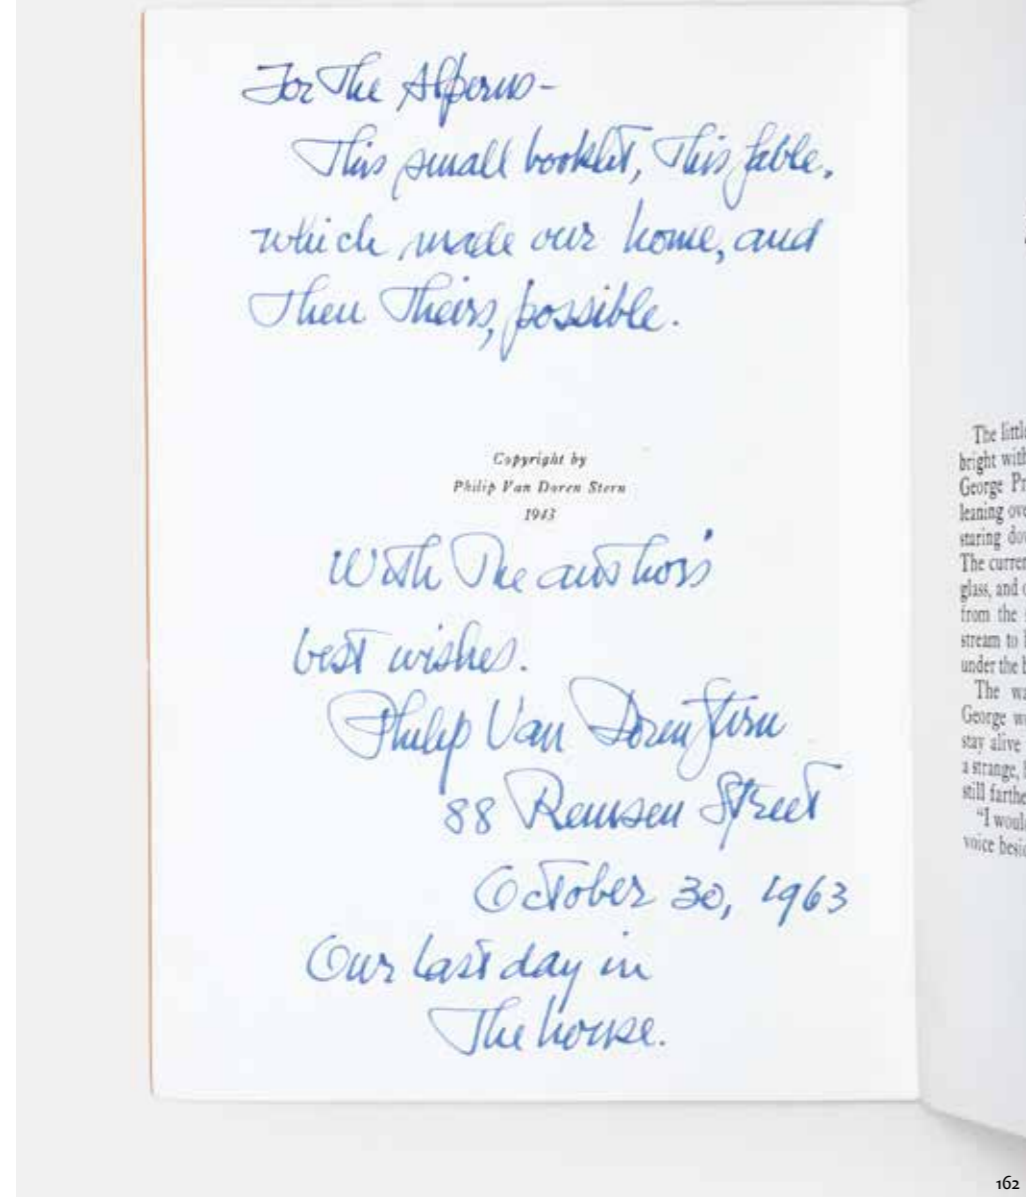 For The Alperns -
This small booklet, This fable,
which made our home, and
Then Theirs, possible.
Copyright by
Philip Van Doren Stern
1943
With The author's
best wishes.
Philip Van Doren Stern
88 Remsen Street
October 30, 1963
Our last day in
The house.
The little
bright with
George Pr
leaning ove
staring dow
The curren
glass, and
from the
stream to
under the b
The wa
George w
stay alive
a strange,
still farthe
"I would
voice besi
162